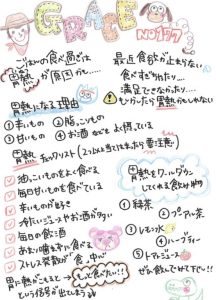 GRACE
NO.177
ごはんの食べ過ぎは
胃熱が原因かも…
最近食欲が止まらない
食べすぎちゃったり…
満足できなかったり…
もしかしたら胃熱かもしれない
胃熱になる理由
①辛いもの ②脂っこいもの
③甘いもの ④お酒 などをよく摂っている
胃熱チェックリスト(2つ以上当てはまったら要注意)
油っこいものをよく食べる
毎日甘いものを食べている
辛いものが好き
冷たいジュースやお酒が多い
毎日の飲酒
あまり噛まずに食べる
ストレス発散が食中心
胃に熱がこもると→もっと食べたい!!
という信号が出てしまう
胃熱をクールダウン
してくれる飲み物
①緑茶
②プーアル茶
③レモン水
④ハーブティー
⑤トマトジュース
ぜひ飲んでみて下さい!!